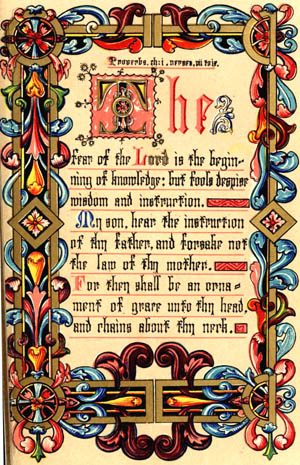 Proverbs, ch: i, verses, vii to ix.
The
fear of the Lord is the begin-
ning of knowledge: but fools despise
wisdom and instruction.
My son, hear the instruction
of thy father, and forsake not
the law of thy mother.
For they shall be an orna-
ment of grace unto thy head,
and chains about thy neck.